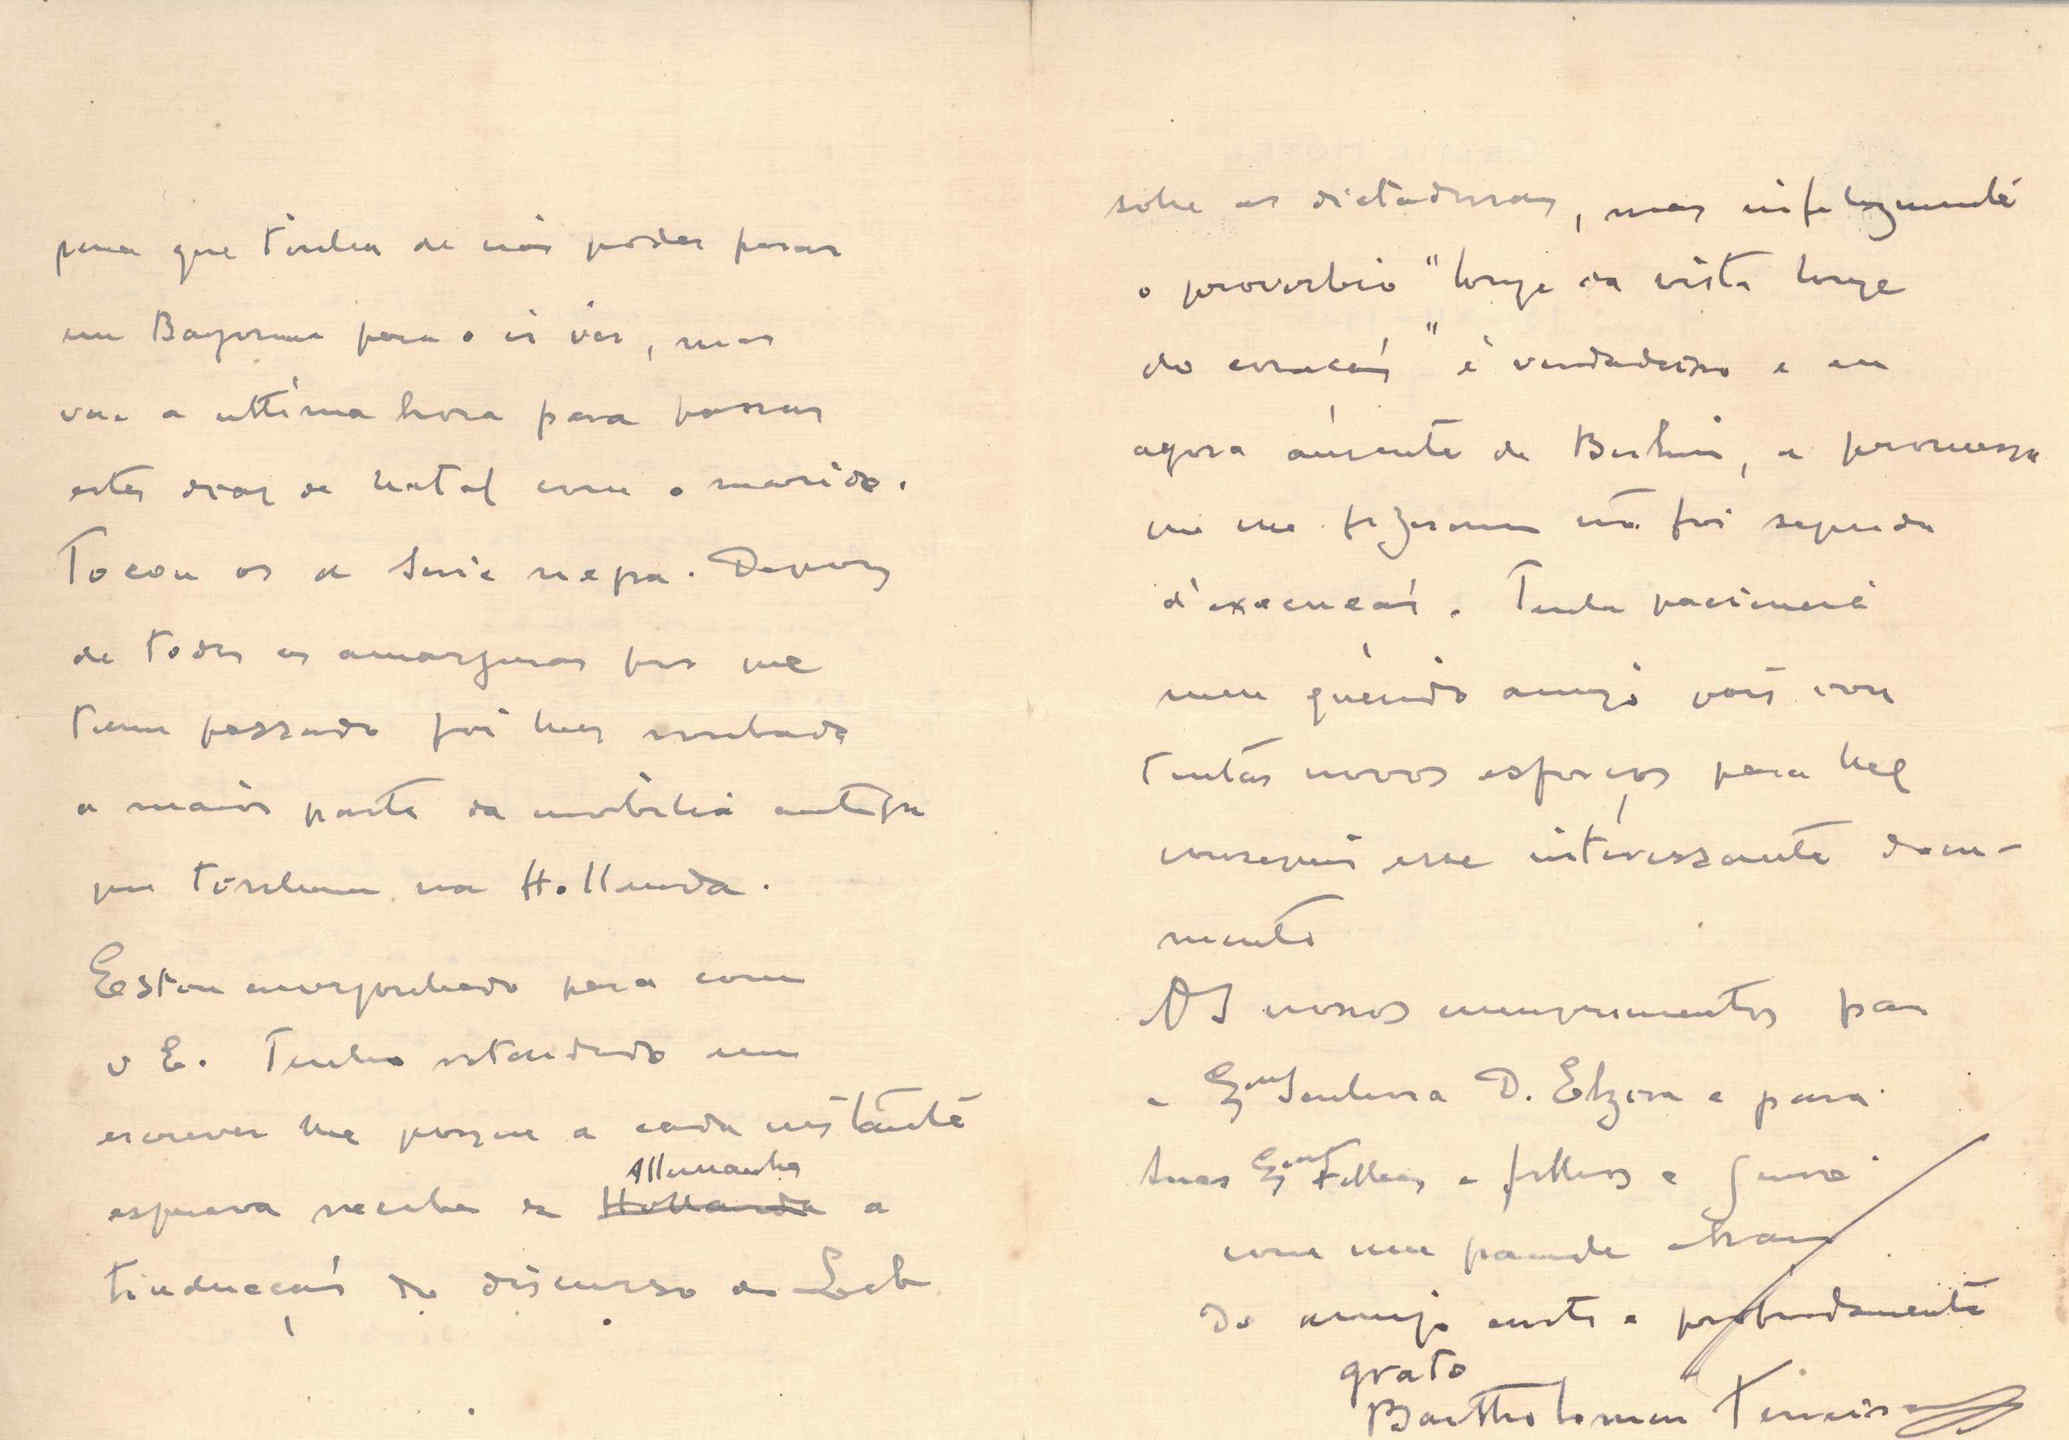 pena que tinha de não poder parar
em Bayonne para o ir ver, mas
vae a ultima hora para passar
estes dias de Natal com o marido.
Tocou os a serie negra. Depois
de todas as amarguras por que
teem passado foi lhes roubada
a maior parte da mobilia antiga
que tinham na Hollanda.
Estou envergonhado para com
v E. Tenho retardado em
escrever lhe porque a cada instante
Allemanha
esperava receber da Hollanda a
traducção do discurso do
sobre as dictaduras, mas infelizmente
o proverbio "longe da vista longe
do coração" é verdadeiro e eu
agora ausente de Berlim, a promessa
que me fizeram não foi seguida
d'execução. Tenha paciencia
meu querido amigo vou
tentar novos esforços para lhe
conseguir esse interessante docu-
mento
Os nossos cumprimentos para
a Exma Senhora D. Elzira e para
suas Exmas Filhas e filhos e Genro
com um grande abraço
Do amigo certo e profundamente
grato
Bartholomeu Ferreira